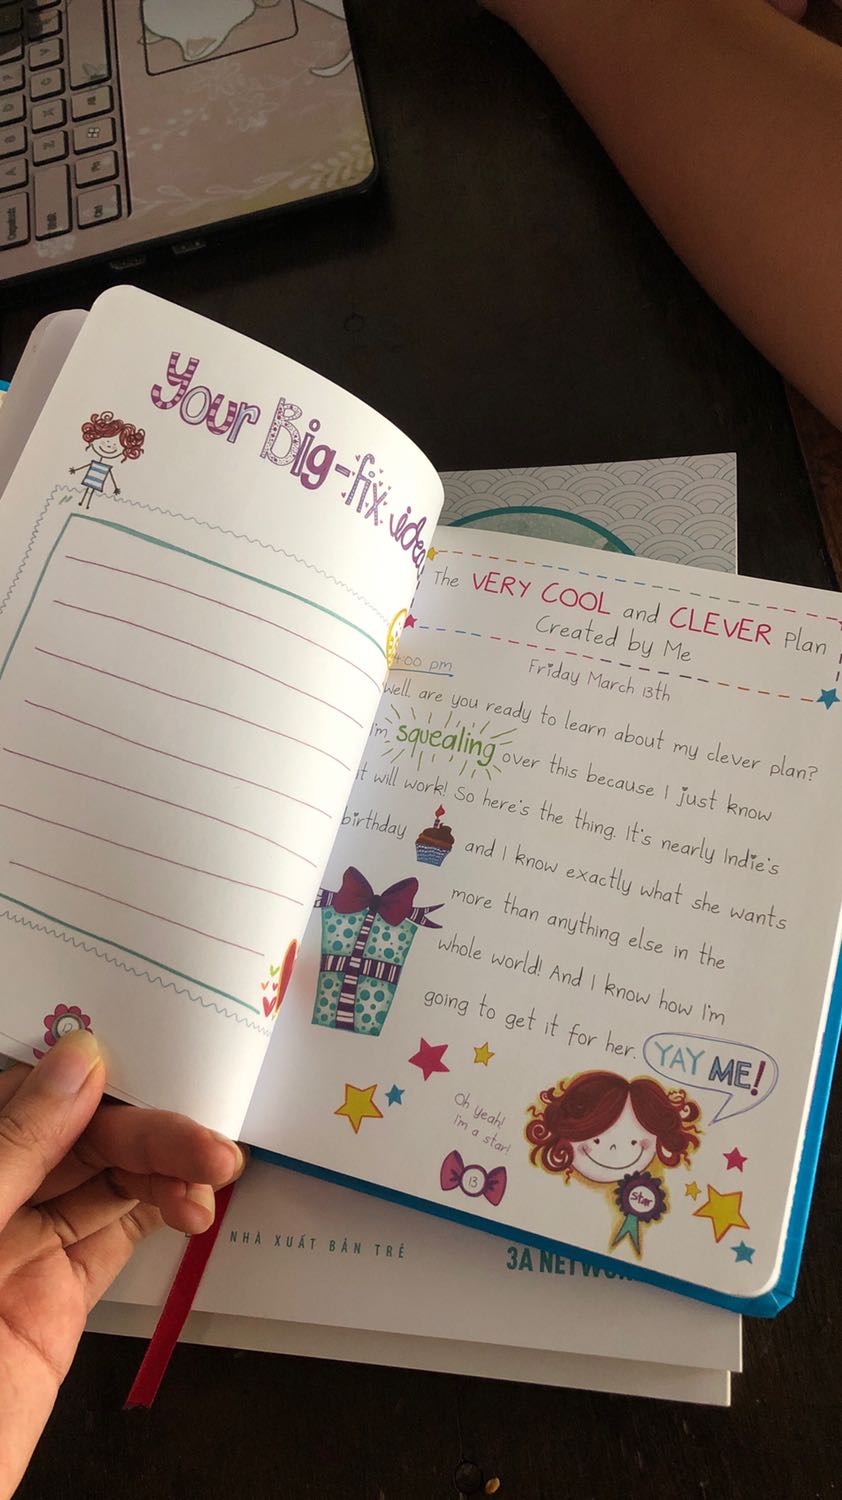 Your Big-fix idea
The VERY COOL and CLEVER Plan
Created by Me
4:00 pm
Friday March 13th
Well are you ready to learn about my clever plan?
I'm squealing over this because I just know
it will work! So here's the thing. It's nearly Indie's
birthday and I know exactly what she wants
more than anything else in the
whole world! And I know how I'm
going to get it for her.
YAY ME!
Oh yeah!
I'm a star!
13
star
NHÀ XUẤT BẢN TRẺ
3A NETWORK